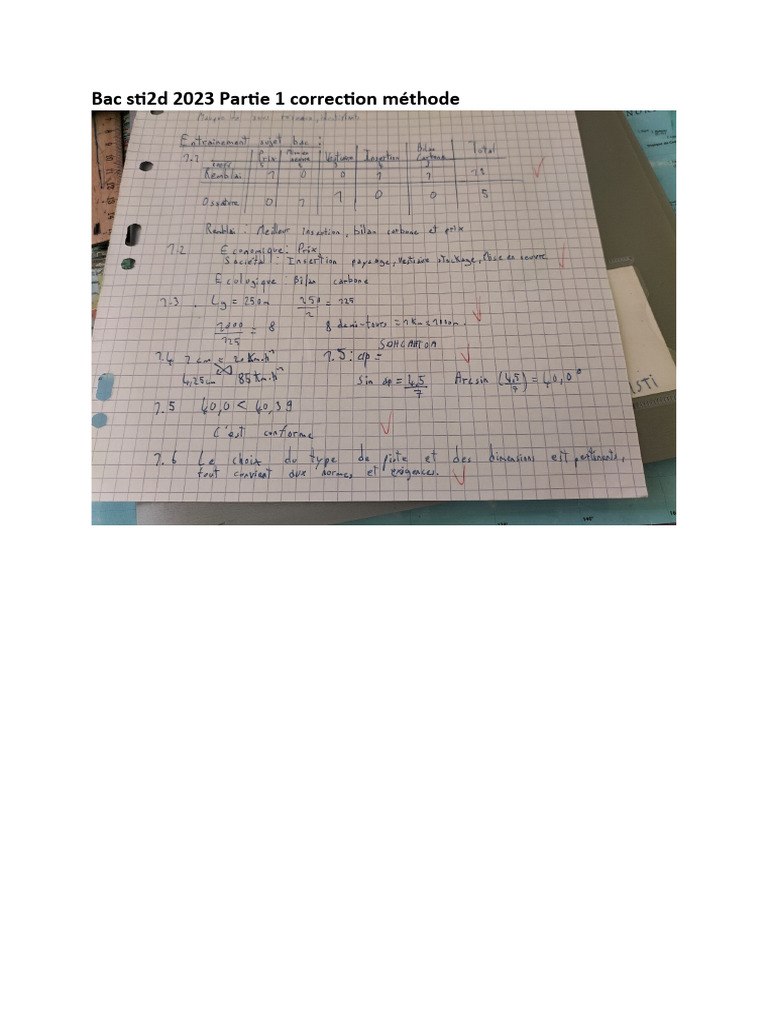 Bac sti2d 2023 Partie 1 correction méthode
Entrainement sujet bac :
1.1 Prix Vestiaire Insertion Bilan Carbone Total
Remblai 1 0 0 1 1
Ossature 0 1 1 0 0 5
Remblai : Meilleur insertion, bilan carbone et prix
1.2 Economique : Prix
Sociétal : Insertion paysage, Vestiaire stockage, Mise en oeuvre
Ecologique : Bilan carbone
1.3 . Lg = 250m 250/2 = 125
1000/125 = 8 8 demi-tours = 1 Km = 1000m.
1.4 1 cm = 20 Km.h⁻¹ 1.5 : αp = SOHCAHTOA
4,25cm 85 Km.h⁻¹ sin αp = 4,5/7 Arcsin (4,5/7) = 40,0°
STI
1.5 40,0 < 40,39
C'est conforme
1.6 Le choix du type de piste et des dimensions est pertinents,
tout convient aux normes et exigences.